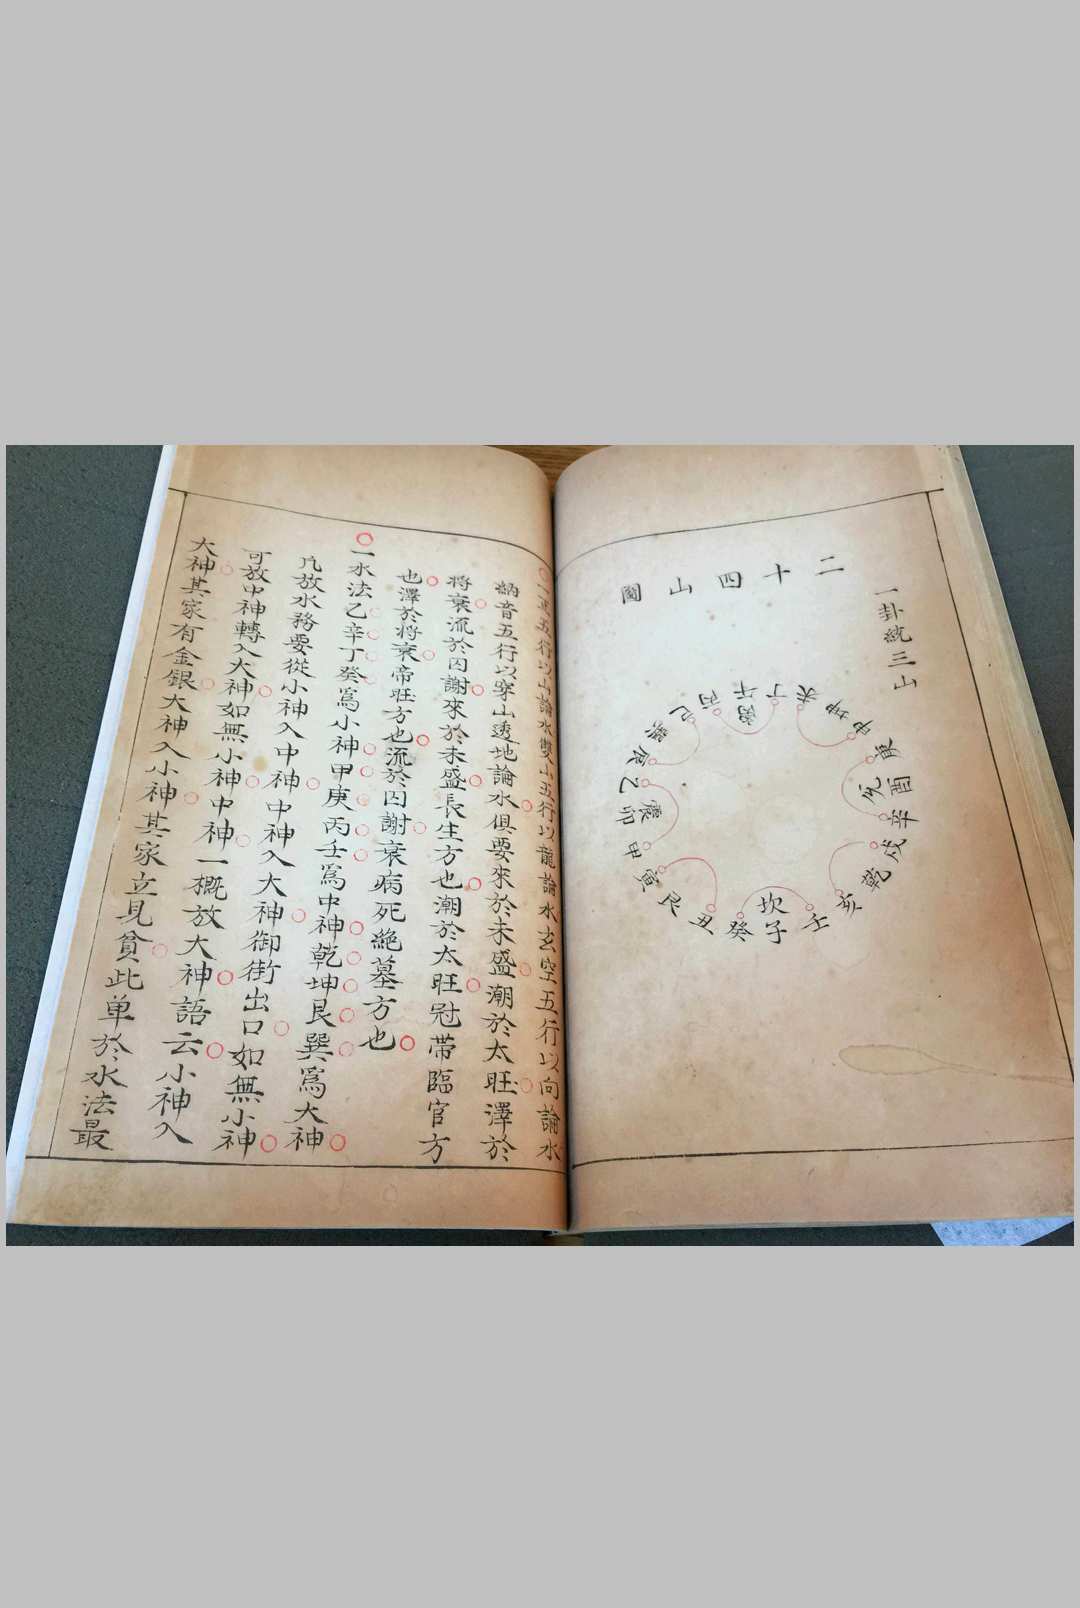 二十四山圖
一卦統三山
壬
坎子
癸
丑
艮
寅
甲
震卯
乙
辰
巽
巳
丙
离午
丁
未
坤
申
庚
兌酉
辛
戌
乾
亥
五行以山論水雙山五行以龍論水玄空五行以向論水
納音五行以穿山透地論水俱要來於未盛潮於太旺澤於
將衰流於囚謝來於未盛長生方也潮於太旺冠帶臨官方
也澤於將衰帝旺方也流於囚謝衰病死絕墓方也
一水法乙辛丁癸為小神甲庚丙壬為中神乾坤艮巽為大神
凢放水務要從小神入中神中神入大神御街出口如無小神
可放中神轉入大神如無小神中神一概放大神語云小神入
大神其家有金銀大神入小神其家立見貧此单於水法最